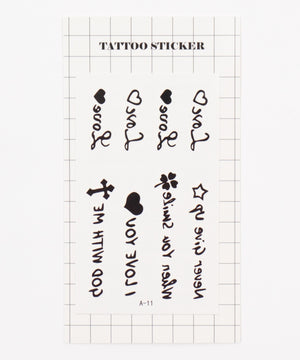 TATTOO STICKER
Love
Love
Love
Love
GOD WITH ME
I LOVE YOU
When You Smile
Never Give Up
A-11